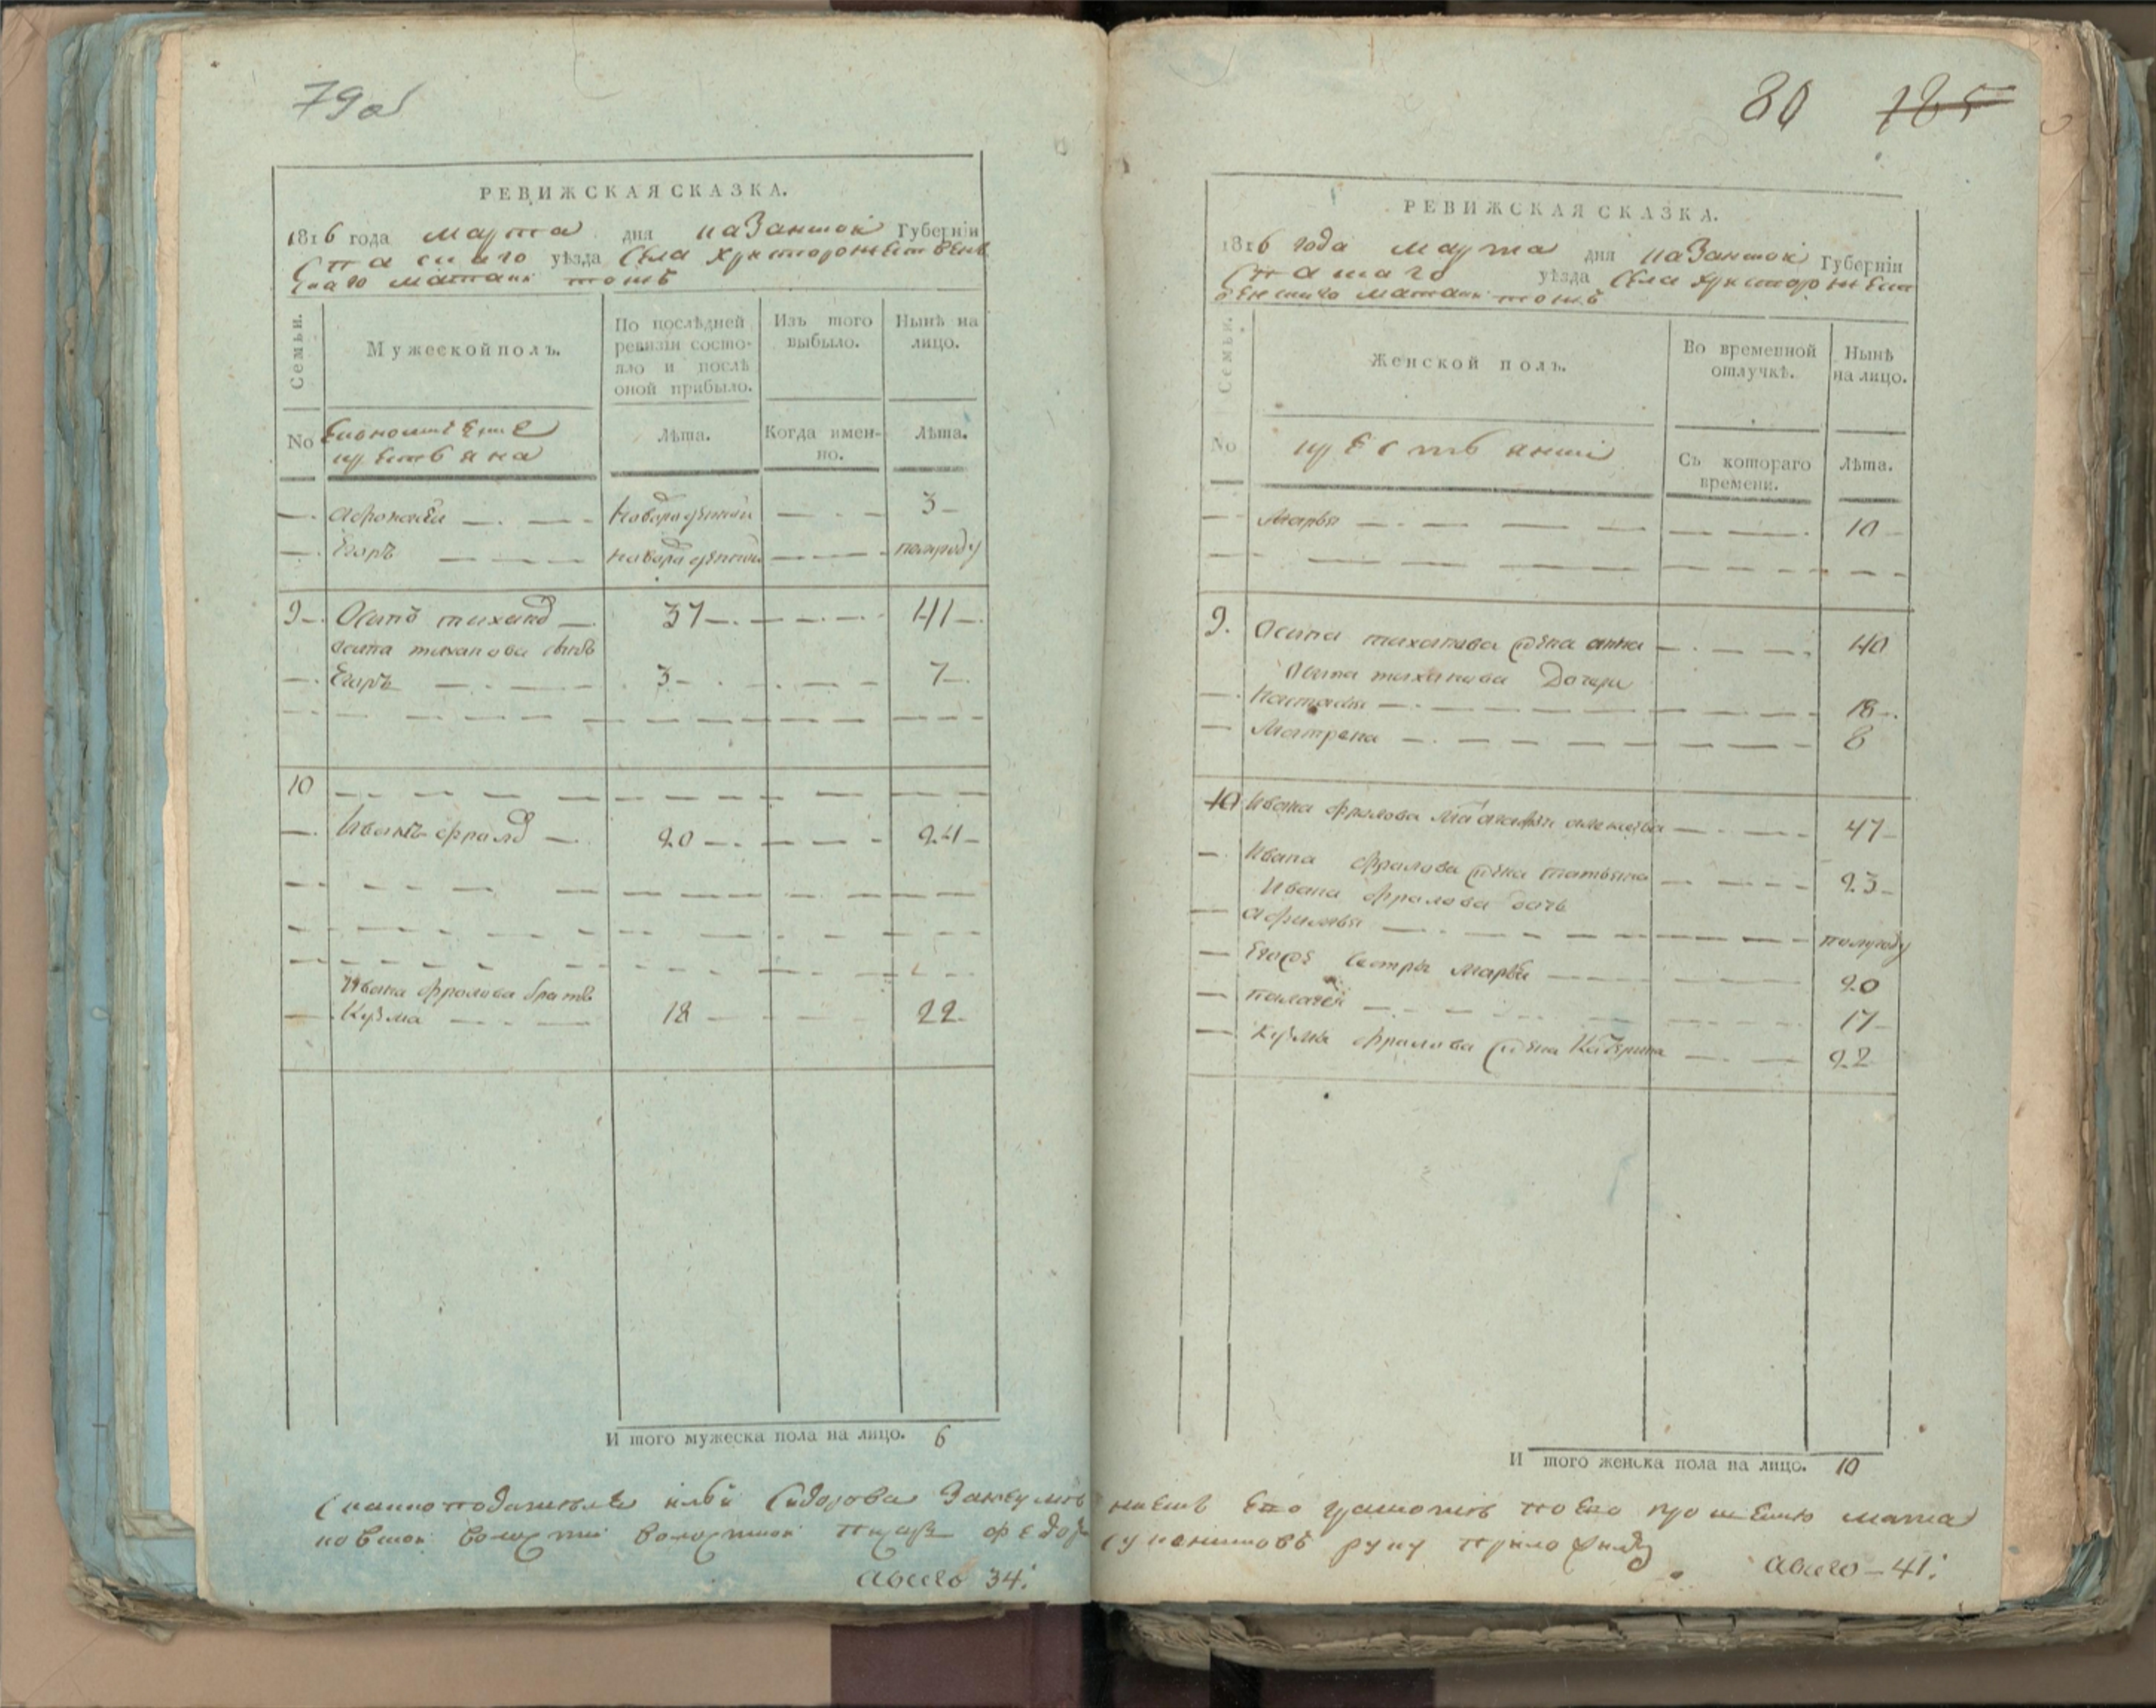 79об
РЕВИЖСКАЯ СКАЗКА.
1816 года марта дня казанской Губернiи
Спаскаго уѣзда села христорожественс
скаго матаки тожъ
Семьи.
Мужеской полъ.
По послѣдней ревизiи состояло и послѣ оной прибыло.
Изъ того выбыло.
Нынѣ на лицо.
No
Економические
крестьяна
Лѣта.
Когда имен-
но.
Лѣта.
Афонасей новорожденной 3
Егоръ новорожденной полугоду
9 Осипъ тиханов 37 41
осипа тиханова сынъ
Егоръ 3 7
10
Иванъ фралов 20 24
Ивана фролова братъ
Кузма 18 22
И того мужеска пола на лицо. 6
80 185
РЕВИЖСКАЯ СКАЗКА.
1816 года марта дня казанской Губернiи
Спаскаго уѣзда села христорожест
венскаго матаки тожъ
Семьи.
Женской полъ.
Во временной отлучкѣ.
Нынѣ на лицо.
No
крестьянки
Съ котораго времени.
Лѣта.
Марья 10
9. Осипа тиханова жена анна 40
Осипа тиханова дочери
Настасья 18
Матрена 8
10 Ивана фралова мать 47
Ивана фралова жена татьяна 23
Ивана фралова дочь
полугоду
Егоже сестры Марья 20
палагея 17
Кузмы фралова жена Катерина 22
И того женска пола на лицо. 10
ильи Сидорова
волости волостной писарь федор
всего 34
его прошению
руку приложилъ
всего – 41